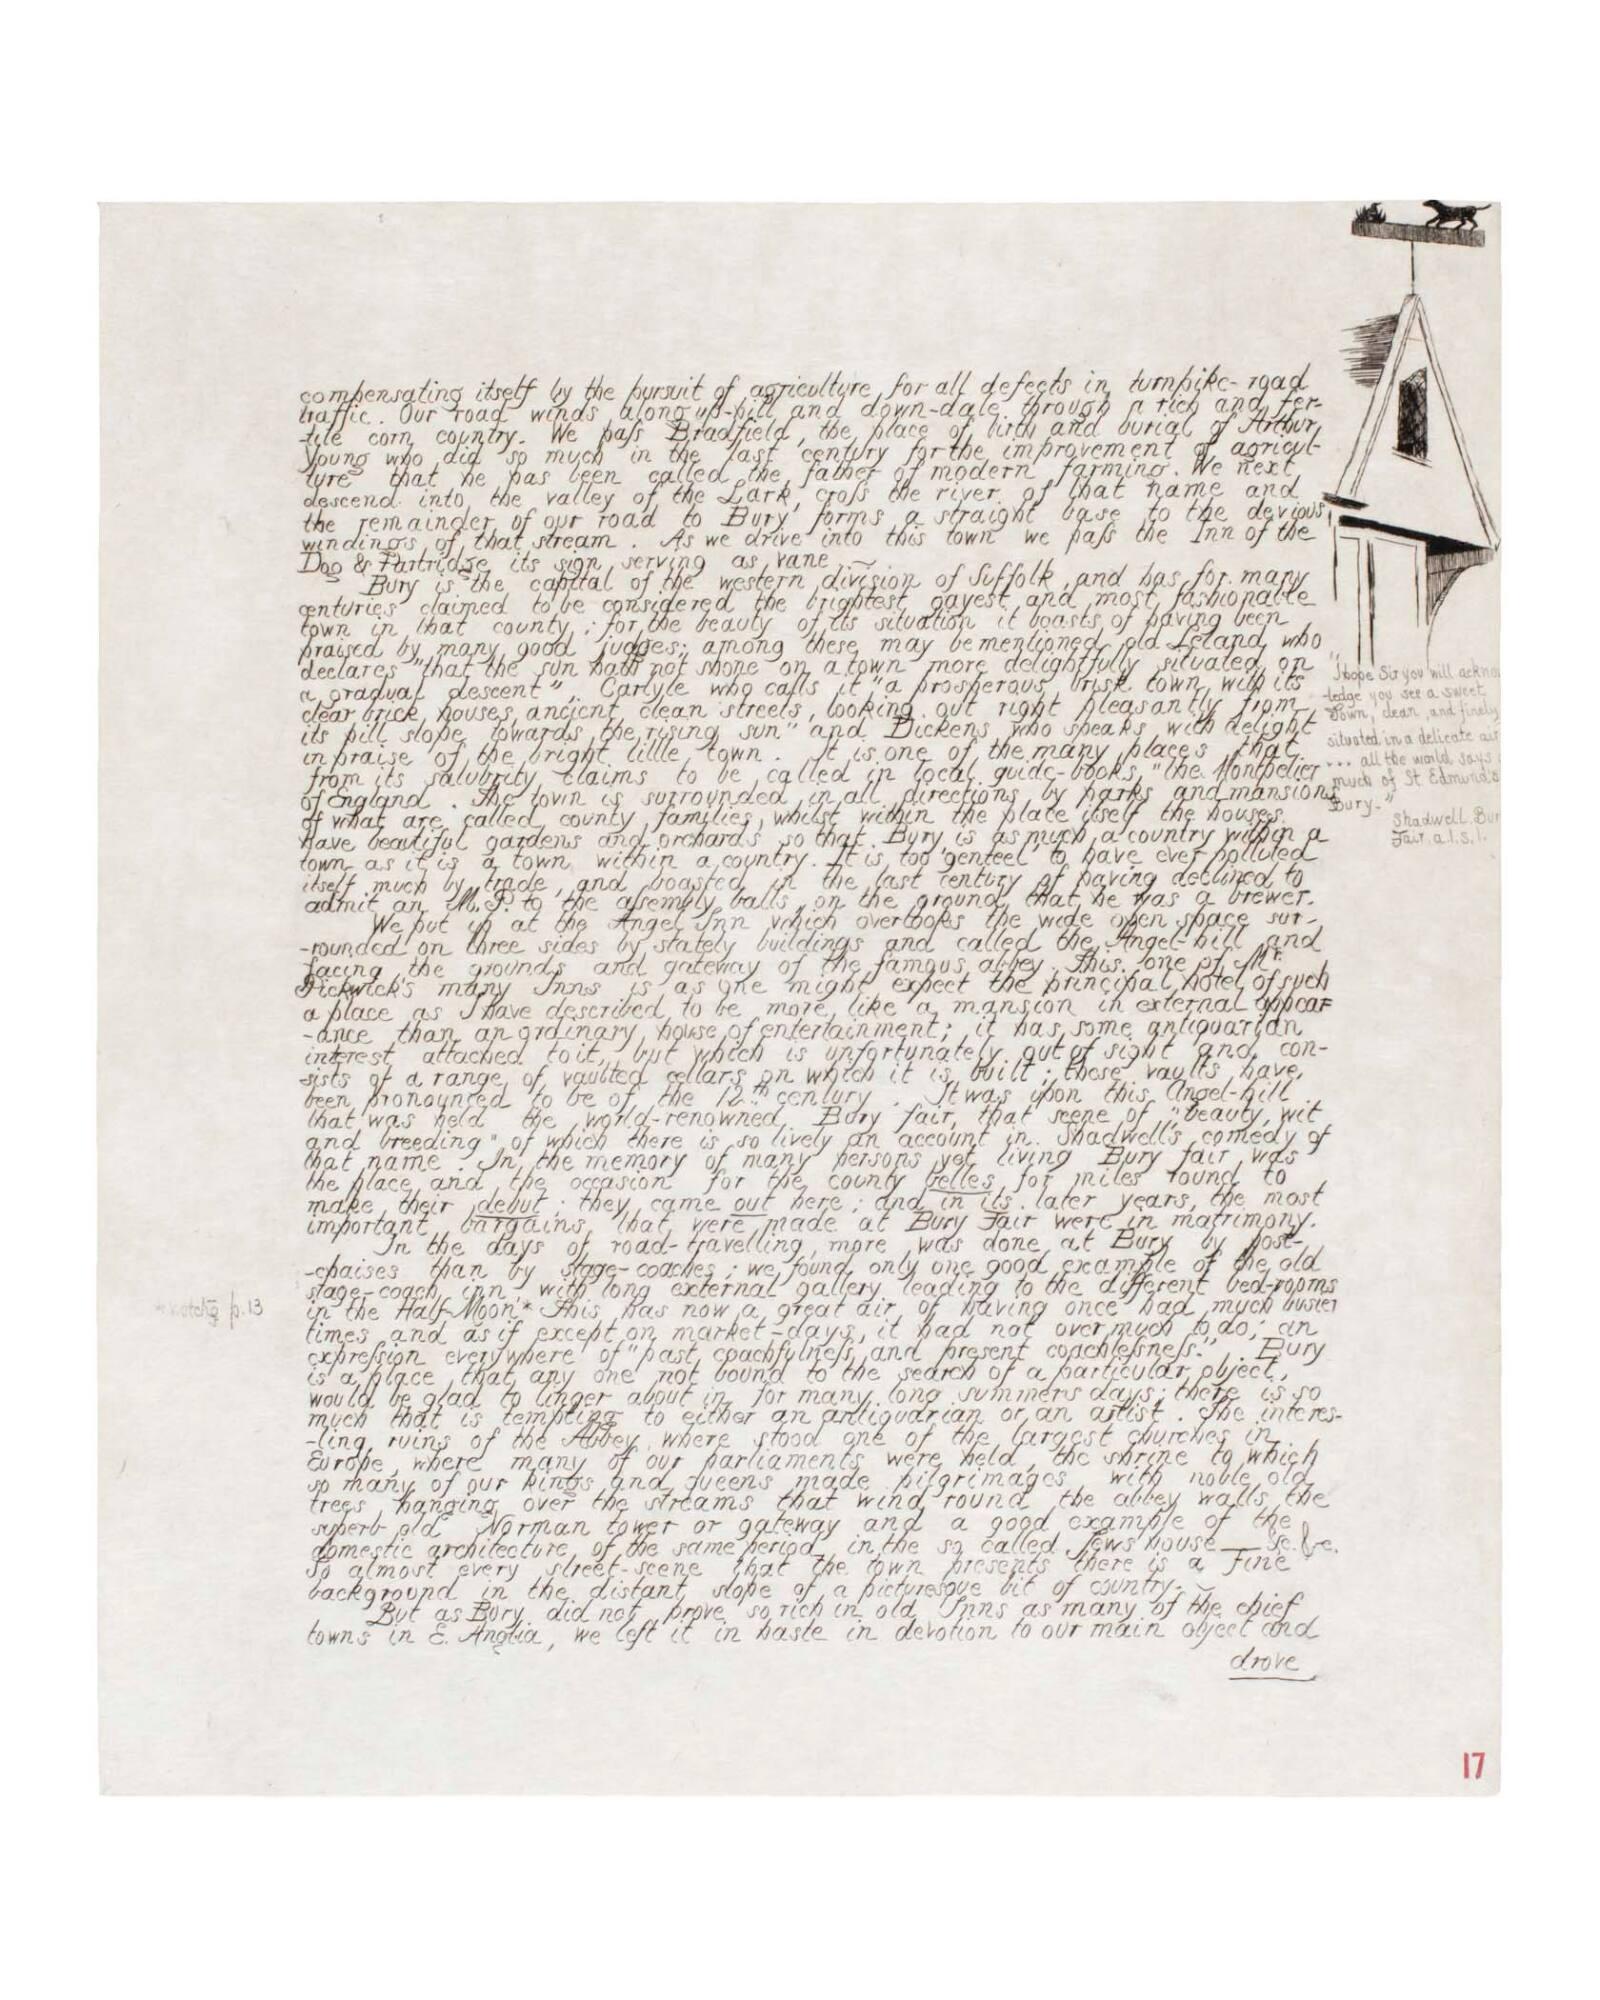 compensating itself by the pursuit of agriculture, for all defects in turnpike-road
traffic. Our road winds along up-hill and down-dale through a rich and fer-
-tile corn country. We pass Bradfield, the place of birth and burial of Arthur
Young who did so much in the last century for the improvement of agricul-
ture that he has been called the father of modern farming. We next
descend into the valley of the Lark, cross the river of that name and
the remainder of our road to Bury forms a straight base to the devious
windings of that stream. As we drive into this town we pass the Inn of the
Dog & Partridge its sign serving as vane ~
Bury is the capital of the western division of Suffolk, and has for many
centuries claimed to be considered the brightest, gayest and most fashionable
town in that county; for the beauty of its situation it boasts of having been
praised by many good judges; among these may be mentioned old Leland who
declares "that the sun hath not shone on a town more delightfully situated on
a gradual descent", Carlyle who calls it "a prosperous brisk town, with its
clear brick houses, ancient clean streets, looking out right pleasantly from
its hill slope towards the rising sun" and Dickens who speaks with delight
in praise of the bright little town. It is one of the many places that
from its salubrity claims to be called in local guide-books, "the Montpelier
of England. The town is surrounded in all directions by parks and mansions
of what are called county families, whilst within the place itself the houses
have beautiful gardens and orchards so that Bury is as much a country within a
town as it is a town within a country. It is too "genteel" to have ever polluted
itself much by trade, and boasted in the last century of having declined to
admit an M.P. to the assembly balls on the ground that he was a brewer.
We put up at the Angel Inn which overlooks the wide open space sur-
-rounded on three sides by stately buildings and called the Angel-hill and
facing the grounds and gateway of the famous abbey. This one of Mr.
Pickwick's many Inns is as one might expect the principal hotel of such
a place as I have described to be more like a mansion in external appear
-ance than an ordinary house of entertainment; it has some antiquarian
interest attached to it, but which is unfortunately out of sight and con-
-sists of a range of vaulted cellars on which it is built; these vaults have
been pronounced to be of the 12th century. It was upon this Angel-hill
that was held the world-renowned Bury fair, that scene of "beauty, wit
and breeding" of which there is so lively an account in Shadwell's comedy of
that name. In the memory of many persons yet living Bury fair was
the place and the occasion for the county belles for miles round to
make their debut; they came out here; and in its later years, the most
important bargains that were made at Bury Fair were in matrimony.
In the days of road-travelling, more was done at Bury by post-
-chaises than by stage-coaches; we found only one good example of the old
stage-coach inn - with long external gallery leading to the different bed-rooms
in the Half-Moon.* This has now a great air of having once had much busier
times and as if except on market-days, it had not over much to do; an
expression everywhere of "past coachfulness and present coachlessness." Bury
is a place that any one not bound to the search of a particular object,
would be glad to linger about in for many long summers days; there is so
much that is tempting to either an antiquarian or an artist. The interes-
-ting ruins of the Abbey where stood one of the largest churches in
Europe, where many of our parliaments were held, the shrine to which
so many of our kings and queens made pilgrimages, with noble old
trees hanging over the streams that wind round the abbey walls the
superb old Norman tower or gateway and a good example of the
domestic architecture of the same period in the so called Jews house — &c. &c.
To almost every street-scene that the town presents there is a fine
background in the distant slope of a picturesque bit of country. ~
But as Bury did not prove so rich in old Inns as many of the chief
towns in E. Anglia, we left it in haste in devotion to our main object and
drove
"I hope Sir you will acknow
-ledge you see a sweet
Town, clean, and finely
situated in a delicate air
... all the world says
much of St Edmunds
Bury."
Shadwell. Bury
Fair. a.1. s.1.
p.13
17